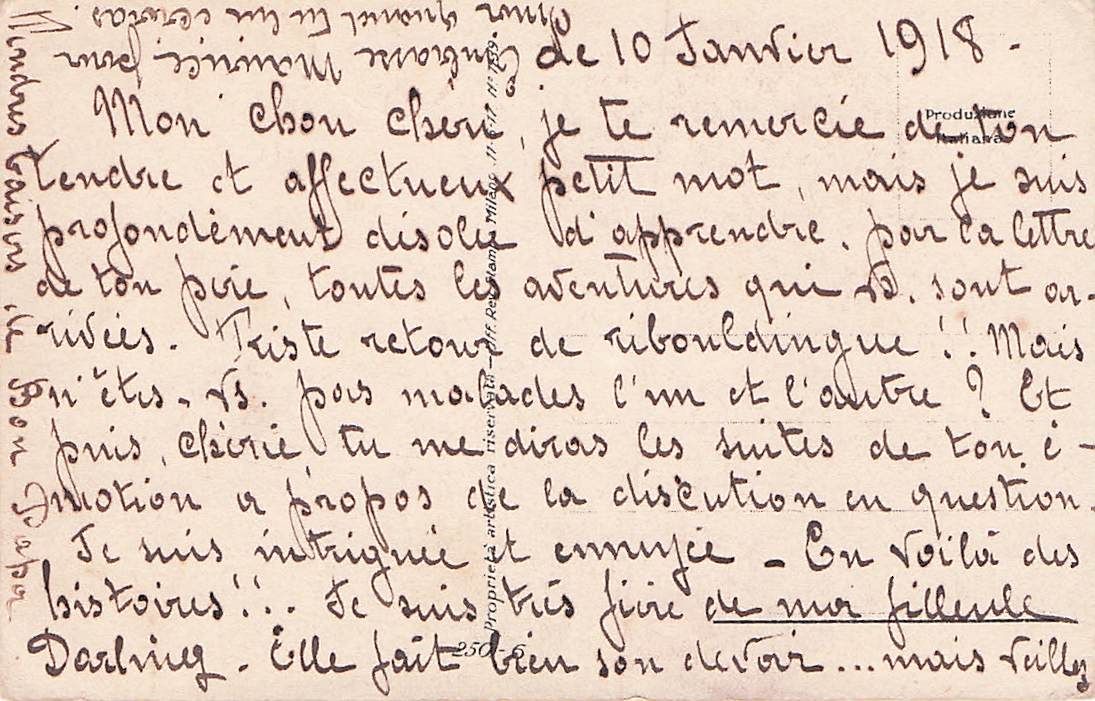 de 10 Janvier 1918 -
Mon chou chéri, je te remercie de ton
tendre et affectueux petit mot, mais je suis
profondément désolée d'apprendre, par la lettre
de ton père, toutes les aventures qui vs. sont ar-
rivées. Triste retour de ribouldingue !! Mais
n'êtes-vs. pas malades l'un et l'autre ? Et
puis, chérie, tu me diras les suites de ton é-
motion a propos de la discution en question.
Je suis intriguée et ennuyée - En voilà des
histoires!!. Je suis très fière de ma filleule
Darling - Elle fait bien son devoir ... mais veillez
Embrasse Mauricie pour
quand tu lui
Tendres baisers de Bon Papa
Produzione
Italiana
Proprietà artistica riservata - Uff. Rev. Stampa Milano 11-6-17 N° 1139
250-6